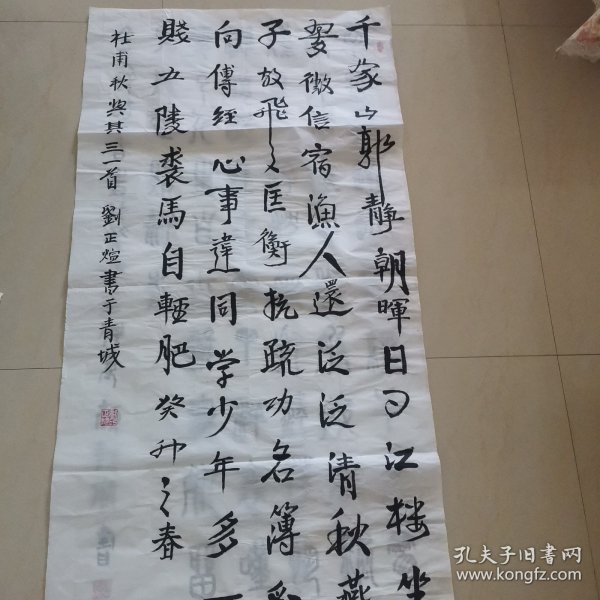 千家山郭靜朝暉日日江樓坐
翠微信宿漁人還泛泛清秋燕
子故飛〻匡衡抗疏功名簿
向傳經心事違同学少年多
賤五陵裘馬自輕肥 癸卯之春
杜甫秋興其三一首 劉正煊書于青城
孔夫子旧书网
www.kongfz.com